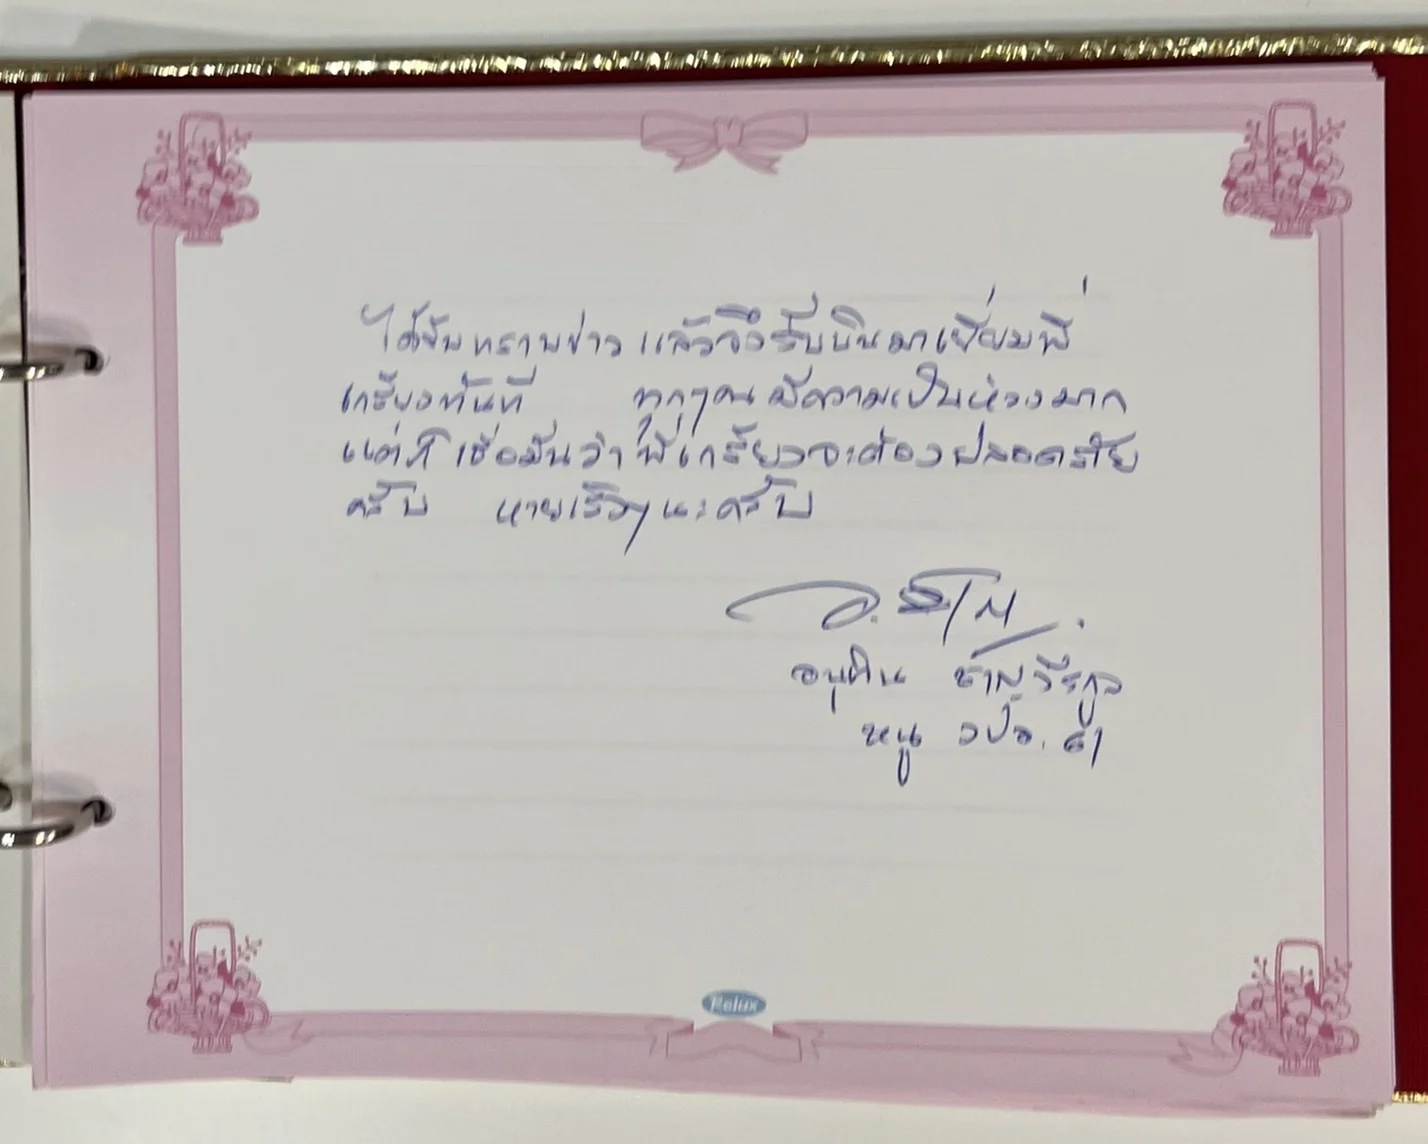 ได้รับทราบข่าว แล้วจึงรีบบินมาเยี่ยมพี่
เกรียงทันที ทุกๆคน มีความเป็นห่วงมาก
แต่ก็ เชื่อมั่นว่า พี่เกรียงจะต้องปลอดภัย
ครับ หายเร็วๆ นะครับ
อนุทิน ชาญวีรกูล
หนู วปอ. 61
Relux